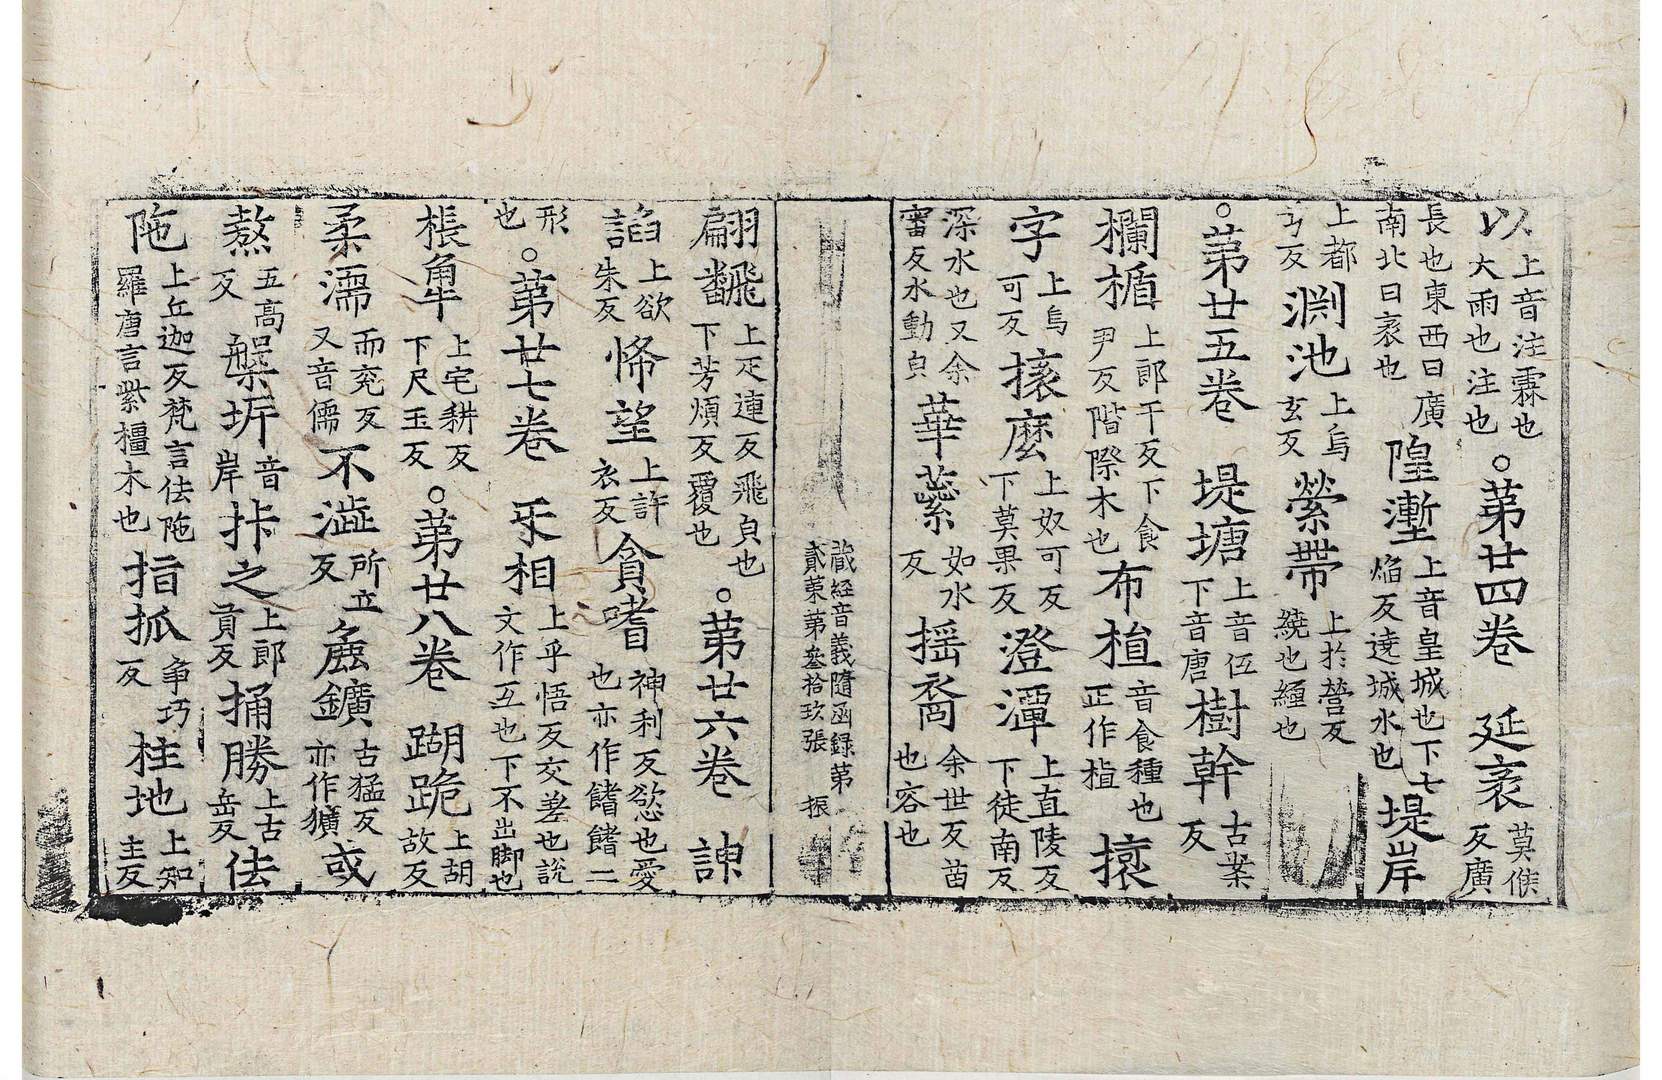 以上音注霖也大雨也注也。苐廿四卷 延袤莫候反廣
長也東西曰廣南北曰袤也隍壍上音皇城也下七焰反遶城水也堤岸
上都兮反淵池上烏玄反縈帶上於營反繞也纏也
。苐廿五卷 堤塘上音伍下音唐樹幹古案反
欄楯上郎干反下食尹反階際木也布㮨音食種也正作植㩜
字上烏可反㩜麽上奴可反下莫果反澄潭上直陵反下徒南反
深水也又余審反水動皃華蘂如水反揺裔余世反苗也容也
蔵經音義隨函録苐貳䇿苐叁拾玖張 振
翩飜上疋連反飛皃也下芳煩反覆也。苐廿六卷 諛
諂上欲朱反悕望上許衣反貪嗜神利反慾也愛也亦作饍饍二
形也。苐廿七卷 㸦相上乎悟反交差也說文作互也下不出脚也
棖䚗上宅耕反下尺玉反。苐廿八卷 蹦跪上胡故反
柔濡而兖反又音儒不澁所立反麁鑛古猛反亦作獷或
熬五高反槃𭏟音岸挊之上郎貢反捔勝上古岳反佉
陁上丘迦反梵言佉陁羅唐言紫橿木也指抓争巧反柱地上知主反